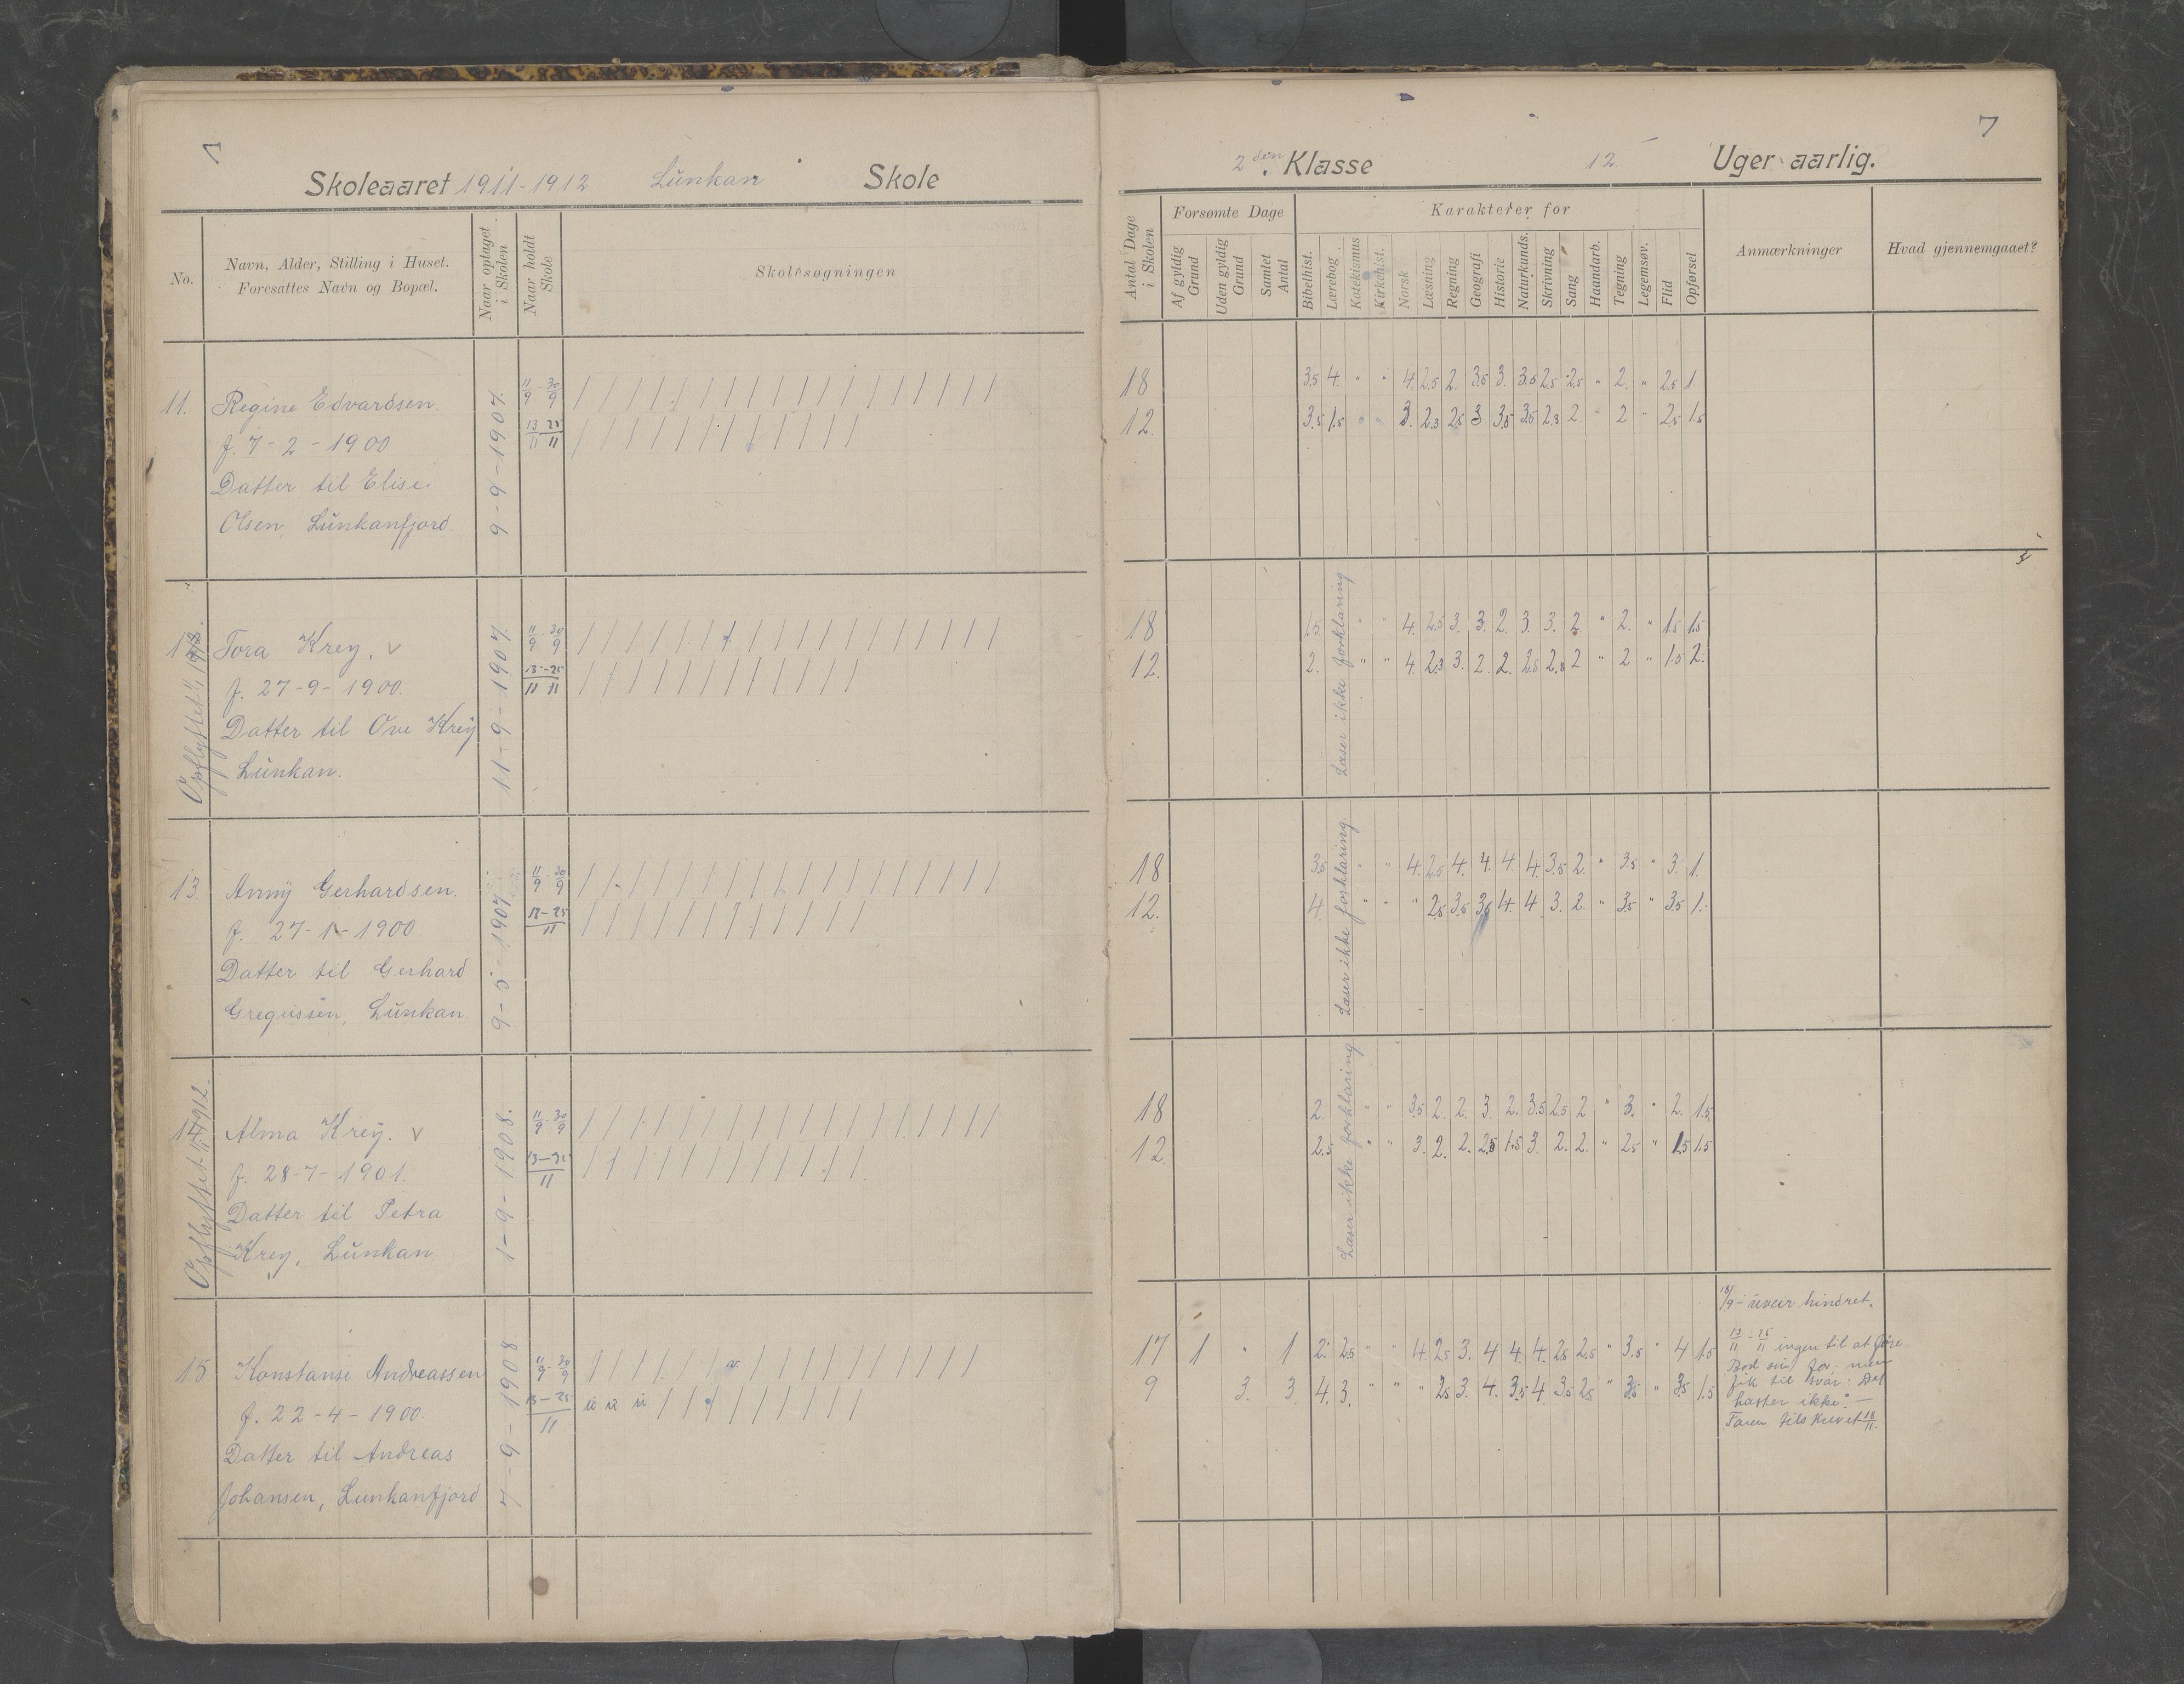 7
Skoleaaret 1911-1912 Lŭnkan Skole
No.
Navn, Alder, Stilling i Huset.
Foresattes Navn og Bopæl.
Naar optaget
i Skolen
Naar holdt
Skole
Skolesøgningen
11. Regine Edvardsen.
f. 7-2-1900
Datter til Elise
Olsen, Lŭnkanfjord
9-9-1907.
11/9 - 30/9
13/11 - 25/11
Tora Krey. v
f. 27-9-1900.
Datter til Ove Kreÿ
Lŭnkan.
11-9-1907.
11/9 - 30/9
13/11 - 25/11
13. Anny Gerhardsen.
f. 27-1-1900.
Datter til Gerhard
Gregussen, Lŭnkan
1907.
11/9 - 30/9
13-25/11
Alma Kreÿ. v
f. 28-7-1901.
Datter til Petra
Krey, Lŭnkan
1-9-1908.
11/9 - 30/9
13-25/11
15 Konstanse Andreassen
f. 22-4-1900.
Datter til Andreas
Johansen, Lunkanfjord
7-9-1908
11/9 - 30/9
13-25/11
7
2den Klasse 12 Uger aarlig.
Antal Dage
i Skolen
Forsømte Dage
Af gyldig
Grund
Uden gyldig
Grund
Samlet
Antal
Karakterer for
Bibelhist.
Lærebog
Katekismus
Kirkehist.
Norsk
Læsning
Regning
Geografi
Historie
Naturkunds.
Skrivning
Sang
Haandarb.
Tegning
Legemsøv.
Flid
Opførsel
Anmærkninger
Hvad gjennemgaaet?
18 3.5 4. " " 4. 2.5 2. 3.5 3. 3.5 2.5 2.5 " 2. " 2.5 1.
12. 3.5 1.5 " " 3. 2.3 2.5 3. 3.5 3.5 2.3 2. " 2 " 2.5 1.5
Læser ikke forklaring
18 1.5 " " 4. 2.5 3. 3. 2. 3. 3. 2 " 2. " 1.5 1.5
12. 2. " " 4. 2.3 3. 2. 2. 2.5 2.8 2 " 2 " 1.5 2.
Læser ikke forklaring.
18 3.5 " " 4. 2.5 4. 4. 4 4. 3.5 2. " 3.5 " 3. 1.
12. 4. " " " 2.5 3.5 3.5 4. 4 3. 2. " 3.5 " 3.5 1.
Læser ikke forklaring
18 2. " " 3.5 2. 2. 3. 2. 3.5 2.5 2 " 3. " 2. 1.5
12 2.5 " " 3. 2. 2. 2.5 1.5 3. 2. 2. " 2.5 " 1.5 1.5
17 1 " 1 2. 2.5 " " 4. 2.5 3. 4 4. 4. 2.5 2.5 " 3.5 " 4 1.5
9 3. 3 4. 3. " " " 2.5 3. 4. 3.5 4. 3.5 2.5 " 3.5 " 3.5 1.5
18/9 - uveir hindret.
13/11 - 15/11 ingen til at före.
Bod sig for men
fik til svar: Det
haster ikke". —
Faren tilskrevet 18/11.